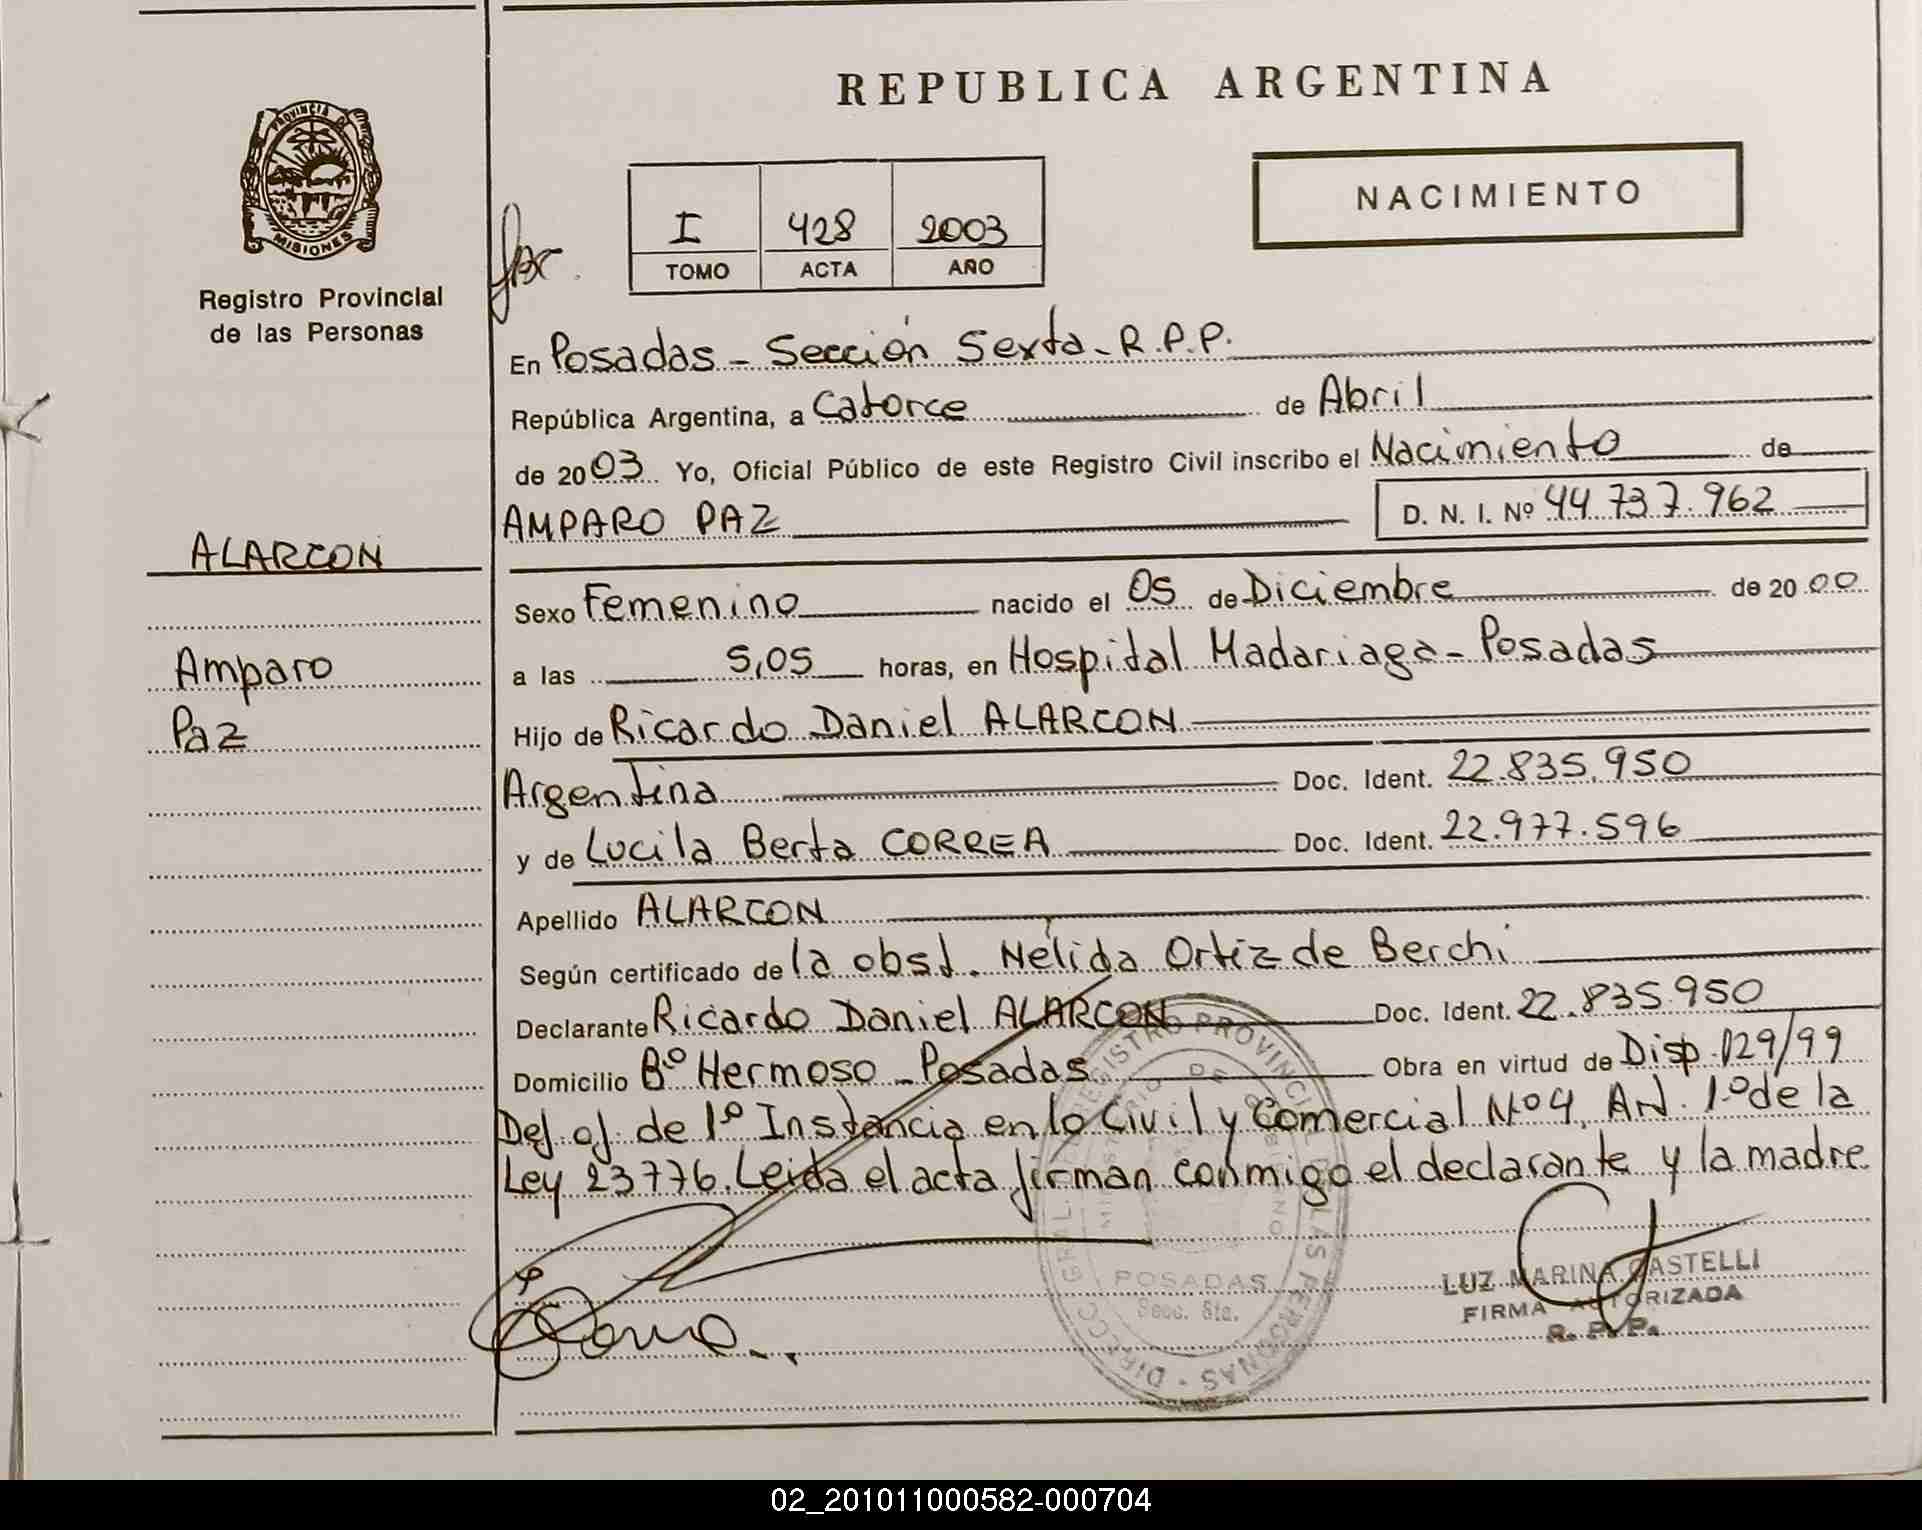 REPUBLICA ARGENTINA
PROVINCIA DE
MISIONES
Registro Provincial
de las Personas
NACIMIENTO
I 428 2003
TOMO ACTA AÑO
En Posadas - Sección Sexta - R.P.P.
República Argentina, a Catorce de Abril
de 2003 Yo, Oficial Público de este Registro Civil inscribo el Nacimiento de
AMPARO PAZ D. N. I. Nº 44.737.962
ALARCON
Amparo
Paz
Sexo Femenino nacido el 05 de Diciembre de 2000
a las 5,05 horas, en Hospital Madariaga - Posadas
Hijo de Ricardo Daniel ALARCON
Argentina Doc. Ident. 22.835.950
y de Lucila Berta CORREA Doc. Ident. 22.977.596
Apellido ALARCON
Según certificado de la obst. Nélida Ortiz de Berchi
Declarante Ricardo Daniel ALARCON Doc. Ident. 22.835.950
Domicilio Bº Hermoso - Posadas Obra en virtud de Disp. 129/99
Def. of. de 1º Instancia en lo Civil y Comercial Nº 4, Art. 1º de la
Ley 23776. Leida el acta firman conmigo el declarante y la madre
LUZ MARINA CASTELLI
FIRMA AUTORIZADA
R. P. P.
DIRECC. GRAL. REGISTRO PROVINCIAL DE LAS PERSONAS
POSADAS
02_201011000582-000704